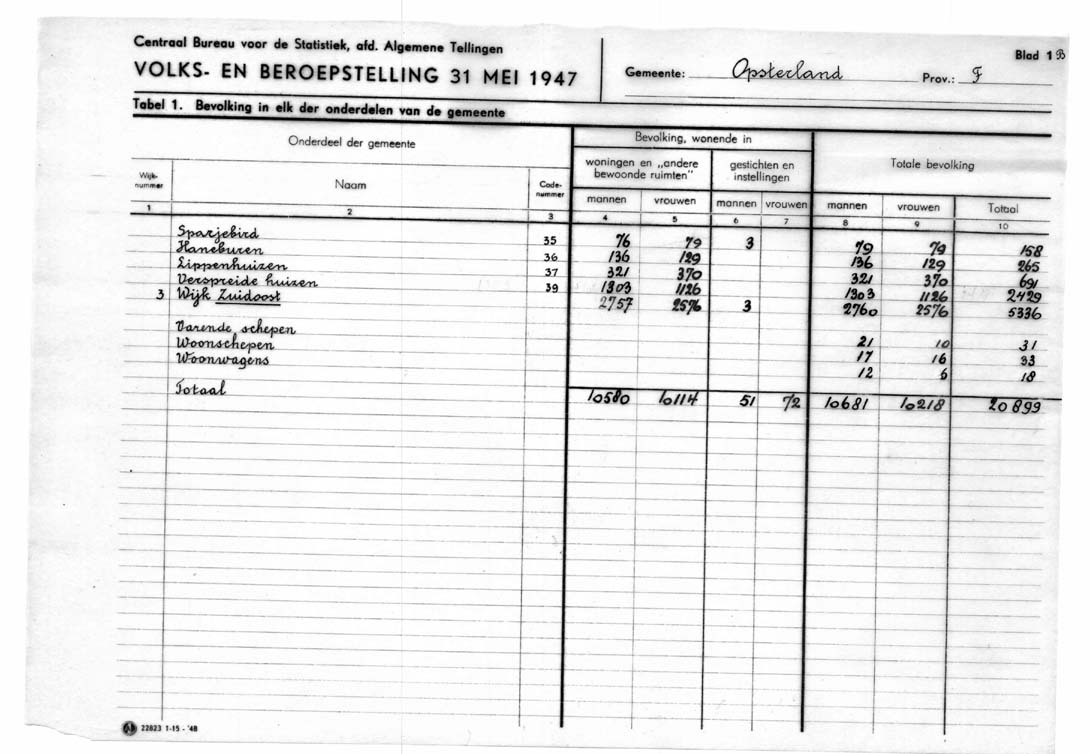 Centraal Bureau voor de Statistiek, afd. Algemene Tellingen
Blad 1 B
VOLKS- EN BEROEPSTELLING 31 MEI 1947
Gemeente: Opsterland Prov.: F
Tabel 1. Bevolking in elk der onderdelen van de gemeente
Onderdeel der gemeente Bevolking, wonende in Totale bevolking
woningen en „andere bewoonde ruimten" gestichten en instellingen
Wijk-nummer Naam Code-nummer mannen vrouwen mannen vrouwen mannen vrouwen Totaal
1 2 3 4 5 6 7 8 9 10
Sparjebird 35 76 79 3 79 79 158
Haneburen 36 136 129 136 129 265
Lippenhuizen 37 321 370 321 370 691
Verspreide huizen 39 1303 1126 1303 1126 2429
3 Wijk Zuidoost 2757 2576 3 2760 2576 5336
Varende schepen 21 10 31
Woonschepen 17 16 33
Woonwagens 12 6 18
Totaal 10580 10114 51 72 10681 10218 20899
22823 1-15-'48